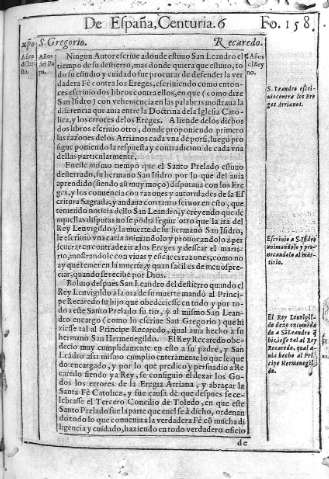 De España, Centuria. 6 Fo. 158.
S. Gregorio. Recaredo.
Ningun Autor escriue adonde estuuo San Leandro el
tiempo de su destierro, mas donde quiera que estuuo, to
do su estudio y cuidado fue procurar de defender la ver
dadera Fé contra los Ereges, escriuiendo como enton-
ces escriuio dos libros contra ellos, en que (como dize
San Isidro) con vehemencia en las palabras mostraua la
diferencia que auia entre la Doctrina de la Iglesia Catoli-
ca, y los errores de los Ereges. A liende de los dichos
dos libros escriuio otro, donde proponiendo primero
las razones de los Arrianos cada vna de por si, luego pro
sigue poniendo la respuesta y contradicion de cada vna
dellas particularmente.
En este mismo tiempo que el Santo Prelado estuuo
desterrado, su hermano San Isidro por lo que del auia
aprendido (siendo aũ muy moço) disputaua con los Ere
ges, y los conuencia con razones y autoridades de la Es
critura Sagrada, y andaua con tanto feruor en esto, que
teniendo noticia dello San Leandro, y creyendo que de
aquellas disputas no se podia seguir otro que la ira del
Rey Leouigildo y la muerte de su hermano San Isidro,
le escriuio vna carta animandolo y prouocandolo a per
seuerar en contradezir a los Ereges y dessear el marti-
rio, mostrandole con viuas y eficaces razones, como no
ay que temer en la muerte, y quan facil es de menospre-
ciar, quando se recibe por Dios.
Boluio despues San Leandro del destierro quando el
Rey Leuvigildo a la ora de su muerte mandó al Principe
Recaredo su hijo que obedeciesse en todo y por to-
do a este Santo Prelado su tio, y al mismo San Lean
dro encargó (como lo escriue San Gregorio) que hi
ziesse tal al Principe Recaredo, qual auia hecho a su
hermano San Hermenegildo. El Rey Recaredo obe-
decio muy cumplidamente en esto a su padre, y San
Leandro assi mismo cumplio enteramente lo que le que
dò encargado, y por lo que predicò y persuadio a Re
caredo siendo ya Rey, se consiguio el dexar los Go-
dos los errores de la Eregia Arriana, y abraçar la
Santa Fé Catolica, y fue causa de que despues se ce-
lebrasse el Tercero Concilio de Toledo, en que este
Santo Prelado fue la parte que en el se à dicho, ordenan
do todo lo que conuenia a la verdadera Fé có mucha di
ligencia y cuidado, haziendo en todo verdadero oficio
de
S. Leandro escri-
uio contra los Ere
ges Arrianos.
Escriuio a S. Isidro
animandolo y pro
uocandolo al mar-
tirio.
El Rey Leuvigil-
do dexó encomenda
do a S. Leandro q̃
hiziesse tal al Rey
Recaredo, qual a-
uia hecho al Prī-
cipe Hermenegil-
do.